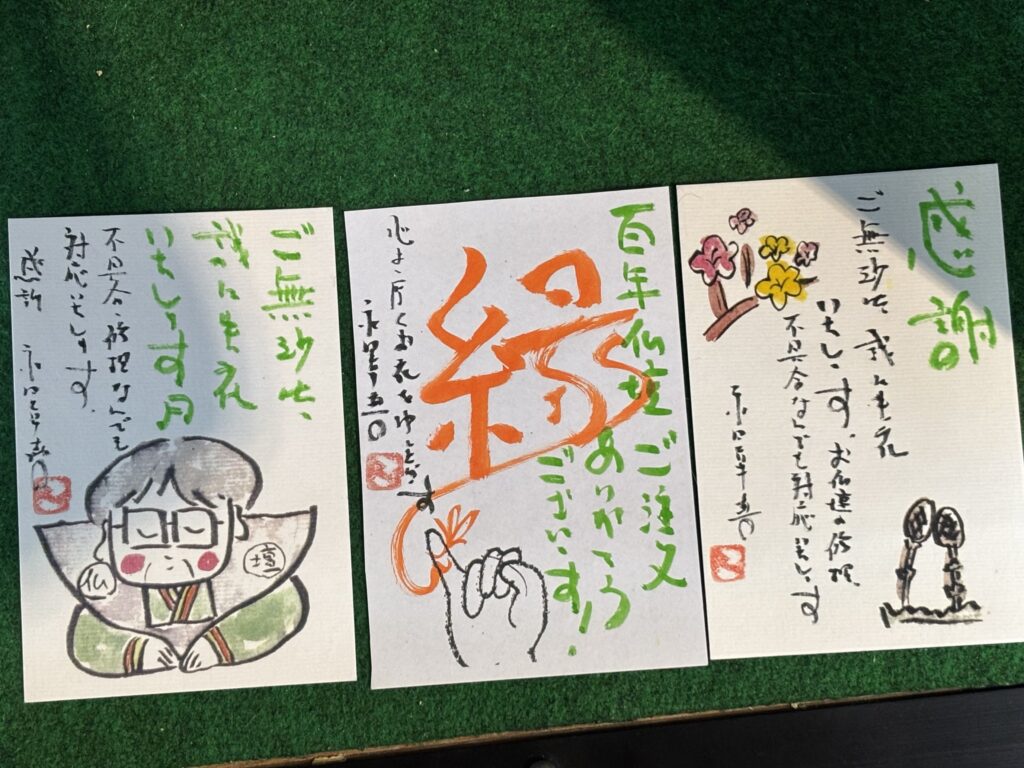 感謝
ご無沙汰、誠に失礼
いたします、お仏壇の修理、
不具合なんでも対応いたします
百年仏壇ご注文
ありがとう
ございます!
縁
心より厚く
ご無沙汰、
誠に失礼
いたします
不具合・修理なんでも
対応いたします。
感謝
仏
壇